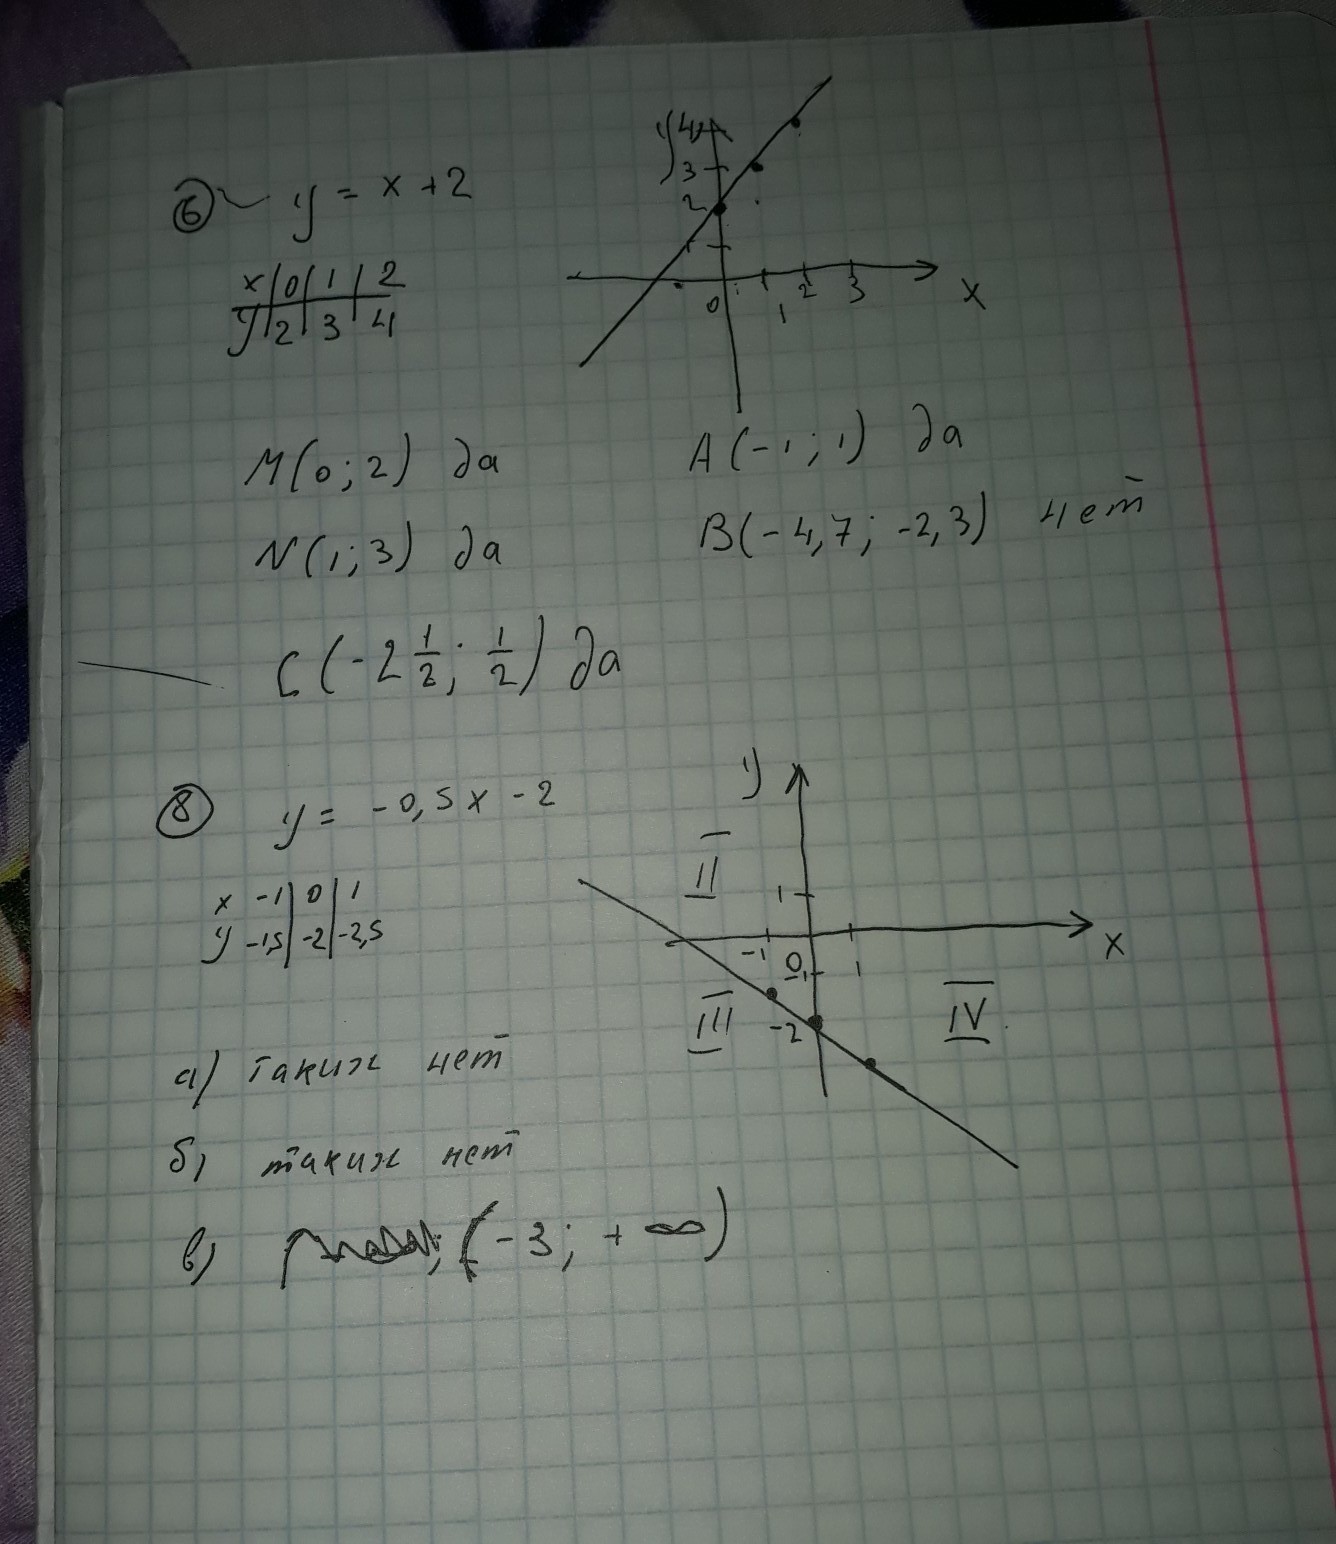 6 y = x + 2
x 0 1 2
y 2 3 4
y 4 3 2 1 0 1 2 3 x
M(0; 2) да
A(-1; 1) да
N(1; 3) да
B(-4,7; -2,3) нет
C(-2 1/2; 1/2) да
8 y = -0,5x - 2
x -1 0 1
y -1,5 -2 -2,5
y II 1 -1 0 1 x
III -2 IV
а) таких нет
б) таких нет
в) (-3; +∞)